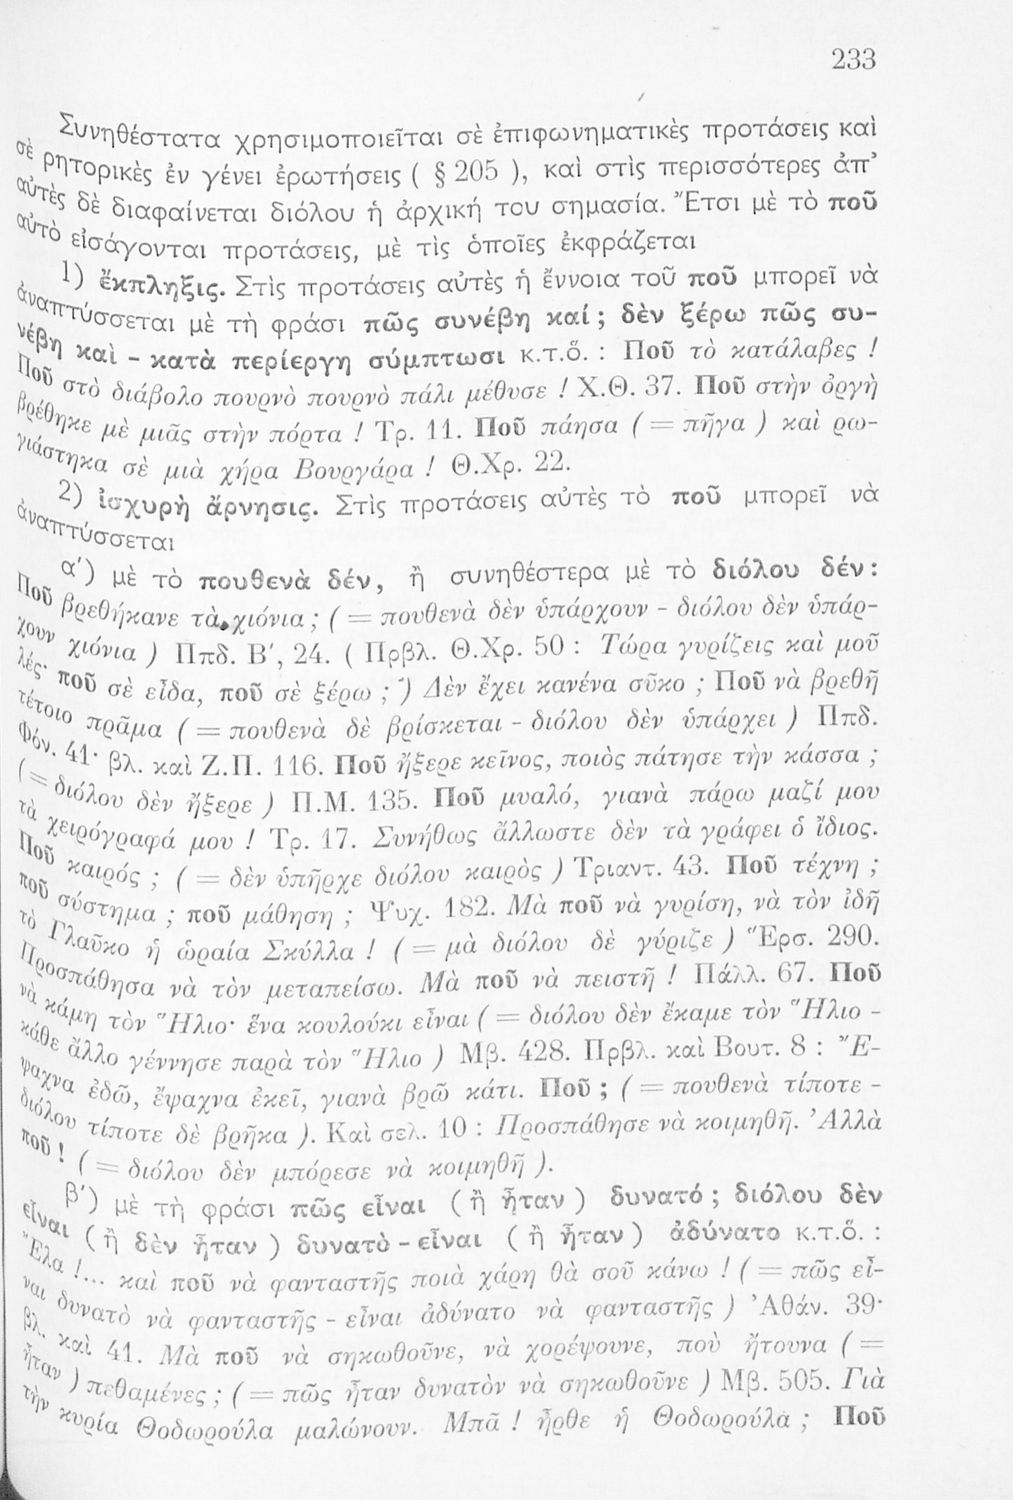 233
Συνηθέστατα χρησιμοποιεῖται σὲ ἐπιφωνηματικὲς προτάσεις καὶ
σὲ ρητορικὲς ἐν γένει ἐρωτήσεις ( § 205 ), καὶ στὶς περισσότερες ἀπ’
αὐτὲς δὲ διαφαίνεται διόλου ἡ ἀρχική του σημασία. Ἔτσι μὲ τὸ ποῦ
αὐτὸ εἰσάγονται προτάσεις, μὲ τὶς ὁποῖες ἐκφράζεται
1) ἔκπληξις. Στὶς προτάσεις αὐτὲς ἡ ἔννοια τοῦ ποῦ μπορεῖ νὰ
ἀναπτύσσεται μὲ τὴ φράσι πῶς συνέβη καί ; δὲν ξέρω πῶς συ-
νέβη καὶ - κατὰ περίεργη σύμπτωσι κ.τ.ὅ. : Ποῦ τὸ κατάλαβες !
Ποῦ στὸ διάβολο πουρνὸ πουρνὸ πάλι μέθυσε ! Χ.Θ. 37. Ποῦ στὴν ὀργὴ
βρέθηκε μὲ μιᾶς στὴν πόρτα ! Τρ. 11. Ποῦ πάησα ( = πῆγα ) καὶ ρω-
γιάστηκα σὲ μιὰ χήρα Βουργάρα ! Θ.Χρ. 22.
2) ἰσχυρὴ ἄρνησις. Στὶς προτάσεις αὐτὲς τὸ ποῦ μπορεῖ νὰ
ἀναπτύσσεται
α΄) μὲ τὸ πουθενὰ δέν, ἢ συνηθέστερα μὲ τὸ διόλου δέν :
Ποῦ βρεθήκανε τὰ χιόνια ; ( = πουθενὰ δὲν ὑπάρχουν - διόλου δὲν ὑπάρ-
χουν χιόνια ) Ππδ. Β΄, 24. ( Πρβλ. Θ.Χρ. 50 : Τώρα γυρίζεις καὶ μοῦ
λές· ποῦ σὲ εἶδα, ποῦ σὲ ξέρω ; ) Δὲν ἔχει κανένα σῦκο ; Ποῦ νὰ βρεθῆ
τέτοιο πρᾶμα ( = πουθενὰ δὲ βρίσκεται - διόλου δὲν ὑπάρχει ) Ππδ.
Φόν. 41· βλ. καὶ Ζ.Π. 116. Ποῦ ἤξερε κεῖνος, ποιὸς πάτησε τὴν κάσσα ;
( = διόλου δὲν ἤξερε ) Π.Μ. 135. Ποῦ μυαλό, γιανὰ πάρω μαζί μου
τὰ χειρόγραφά μου ! Τρ. 17. Συνήθως ἄλλωστε δὲν τὰ γράφει ὁ ἴδιος.
Ποῦ καιρός ; ( = δὲν ὑπῆρχε διόλου καιρὸς ) Τριαντ. 43. Ποῦ τέχνη ;
ποῦ σύστημα ; ποῦ μάθηση ; Ψυχ. 182. Μὰ ποῦ νὰ γυρίση, νὰ τὸν ἰδῆ
τὸ Γλαῦκο ἡ ὡραία Σκύλλα ! ( = μὰ διόλου δὲ γύριζε ) Ἔρσ. 290.
Προσπάθησα νὰ τὸν μεταπείσω. Μὰ ποῦ νὰ πειστῆ ! Πάλλ. 67. Ποῦ
νὰ κάμη τὸν Ἥλιο· ἕνα κουλούκι εἶναι ( = διόλου δὲν ἔκαμε τὸν Ἥλιο -
κάθε ἄλλο γέννησε παρὰ τὸν Ἥλιο ) Μβ. 428. Πρβλ. καὶ Βουτ. 8 : Ἔ-
ψαχνα ἐδῶ, ἔψαχνα ἐκεῖ, γιανὰ βρῶ κάτι. Ποῦ ; ( = πουθενὰ τίποτε -
διόλου τίποτε δὲ βρῆκα ). Καὶ σελ. 10 : Προσπάθησε νὰ κοιμηθῆ. Ἀλλὰ
ποῦ ! ( = διόλου δὲν μπόρεσε νὰ κοιμηθῆ ).
β΄) μὲ τὴ φράσι πῶς εἶναι ( ἢ ἦταν ) δυνατό ; διόλου δὲν
εἶναι ( ἢ δὲν ἦταν ) δυνατὸ - εἶναι ( ἢ ἦταν ) ἀδύνατο κ.τ.ὅ. :
Ἔλα !... καὶ ποῦ νὰ φανταστῆς ποιὰ χάρη θὰ σοῦ κάνω ! ( = πῶς εἶ-
ναι δυνατὸ νὰ φανταστῆς - εἶναι ἀδύνατο νὰ φανταστῆς ) Ἀθάν. 39·
βλ. καὶ 41. Μὰ ποῦ νὰ σηκωθοῦνε, νὰ χορέψουνε, ποὺ ἤτουνα ( =
ἦταν ) πεθαμένες ; ( = πῶς ἦταν δυνατὸν νὰ σηκωθοῦνε ) Μβ. 505. Γιὰ
τὴν κυρία Θοδωρούλα μαλώνουν. Μπᾶ ! ἦρθε ἡ Θοδωρούλα ; Ποῦ